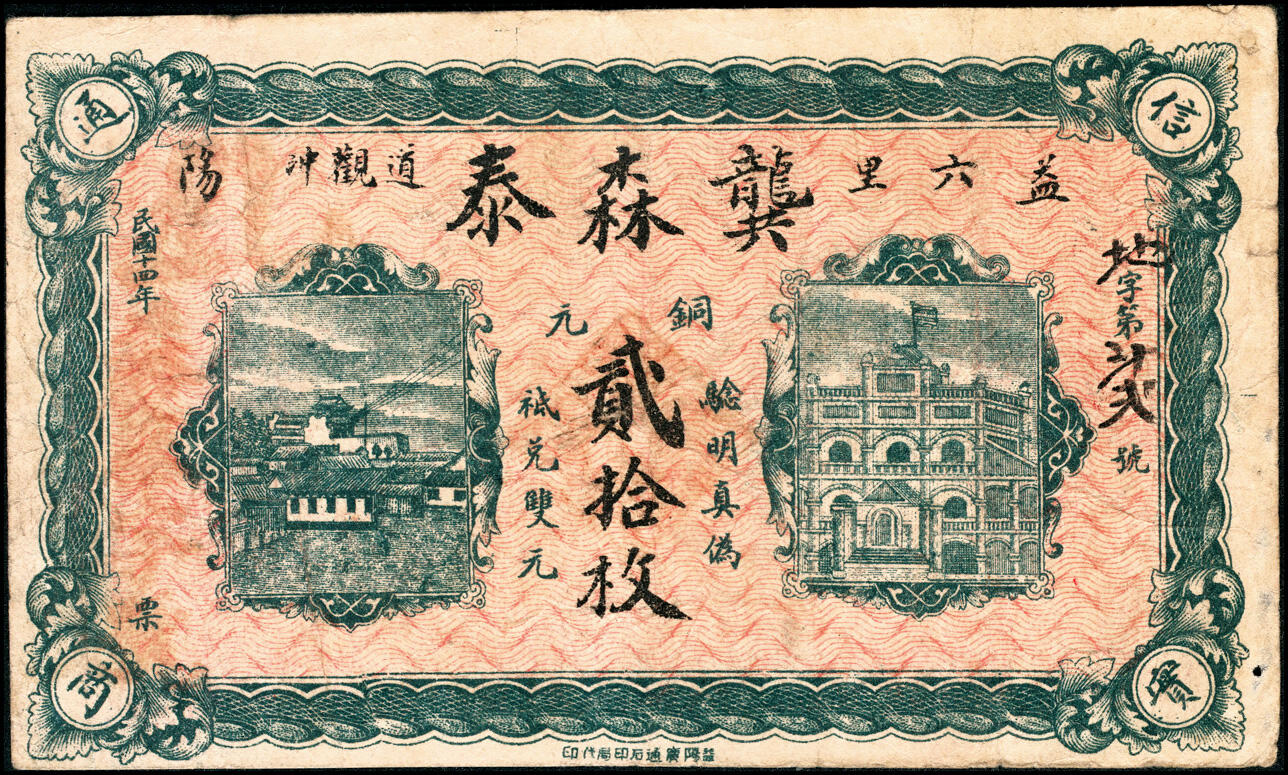 信
實
通
商
益六里龔森泰道觀冲陽
地字第
號
銅元
貳拾枚
騐明真偽
祇兑雙元
民國十四年
票
益陽廣通石印局代印